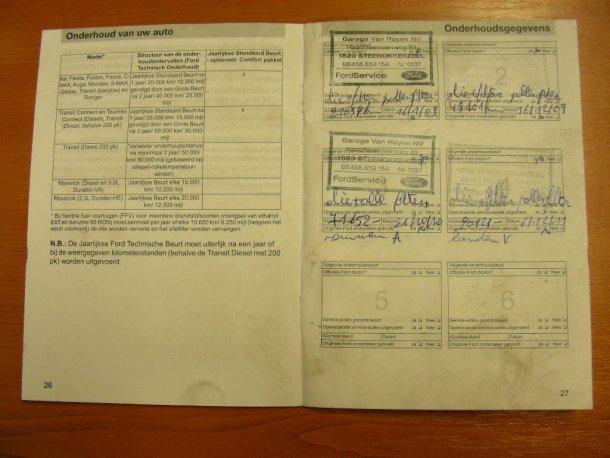 Onderhoud van uw auto
Model*
Structuur van de onder-
houdsintervallen (Ford
Technisch Onderhoud)
Jaarlijkse Standaard Beurt
- optioneel: Comfort pakket
Ka, Fiesta, Fusion, Focus, C-
MAX, Kuga, Mondeo, S-MAX
Galaxy, Transit (benzine) en
Ranger
Jaarlijkse Standaard Beurt na
1 jaar/ 20.000 km/ 12.500 mijl
gevolgd door een Grote Beurt
na 2 jaar/ 40.000 km/ 25.000
mijl
x
Transit Connect en Tourneo
Connect (Diesel), Transit
(Diesel, behalve 200 pk)
Jaarlijkse Standaard Beurt na
1 jaar/ 25.000 km/ 15.000 mijl
gevolgd door een Grote Beurt
na 2 jaar/ 50.000 km/ 30.000
mijl
x
Transit (Diesel 200 pk)
Variabele onderhoudsinterval
na maximaal 2 jaar/ 50.000
km/ 30.000 mijl (gebaseerd op
oliepeil-/olietemperatuur-
sensor)
Maverick (Diesel en 3.0L
Duratec-V6)
Jaarlijkse Beurt elke 15.000
km/ 10.000 mijl
Maverick (2.3L Duratec-HE)
Jaarlijkse Beurt elke 20.000
km/ 12.500 mijl
* Bij flexible fuel voertuigen (FFV) voor meerdere brandstofsoorten (mengsel van ethanol
E85 en benzine 95 RON) moet eenmaal per jaar of elke 10.000 km/ 6.250 mijl (hetgeen het
eerst voorkomt) de olie worden ververst en het oliefilter worden vervangen.
N.B.: De Jaarlijkse Ford Technische Beurt moet uiterlijk na een jaar of
bij de weergegeven kilometerstanden (behalve de Transit Diesel met 200
pk) worden uitgevoerd.
26
Onderhoudsgegevens
Garage Van Royen NV
1820 STEENOKKERZEEL
BE456.659.184 Nr 0137
FordService
Ford
Volgende onderhoudsbeurt
Officiële Ford dealer? Ja Nee
2
olie filter pollenfilter
Garage Van Royen NV
1820 STEENOKKERZEEL
BE456.659.184 Nr 0137
FordService
Ford
Officiële Ford dealer? Ja Nee
Openstaande service-acties uitgevoerd Ja Nee
Originele Ford onderdelen gebruikt Ja Nee
remmen A
banden V
Volgende onderhoudsbeurt
Officiële Ford dealer? Ja Nee
5
Service-acties gecontroleerd Ja Nee
Openstaande service-acties uitgevoerd Ja Nee
Kilometerstand Datum
Originele Ford onderdelen gebruikt Ja Nee
Volgende onderhoudsbeurt
Officiële Ford dealer? Ja Nee
6
Service-acties gecontroleerd Ja Nee
Openstaande service-acties uitgevoerd Ja Nee
Kilometerstand Datum
Originele Ford onderdelen gebruikt Ja Nee
27